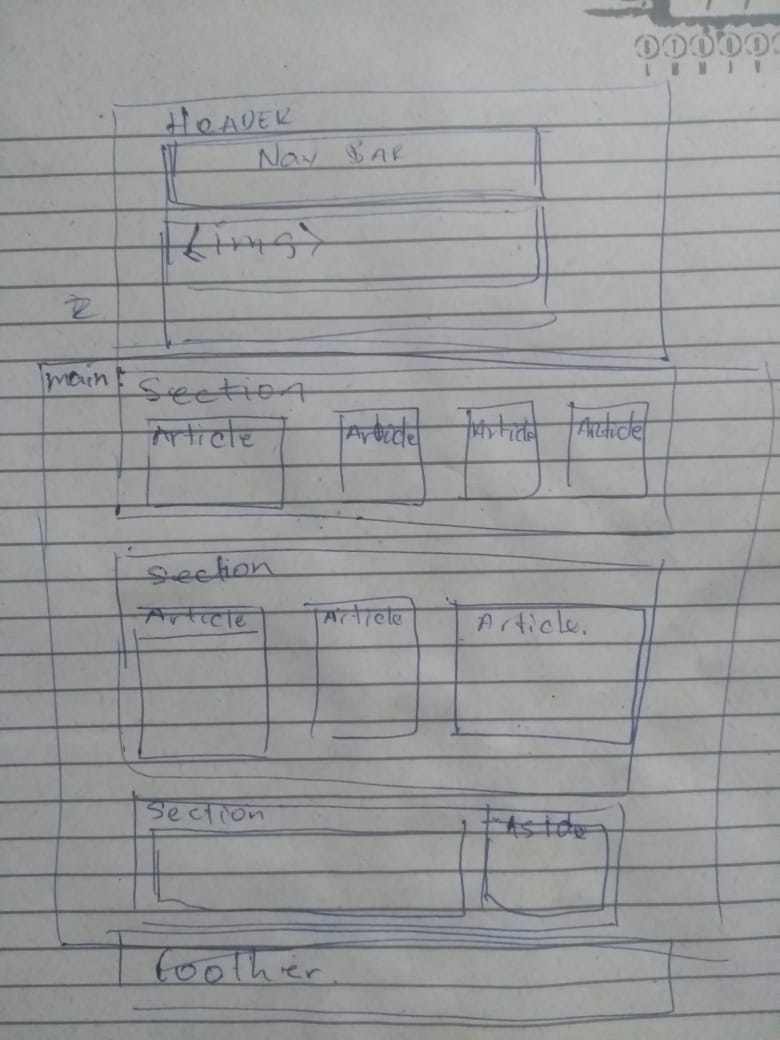 HOADER
Nav BAR
<img>
main
Section
Article Article Article Article
Section
Article Article Article.
Section Aside
foother.